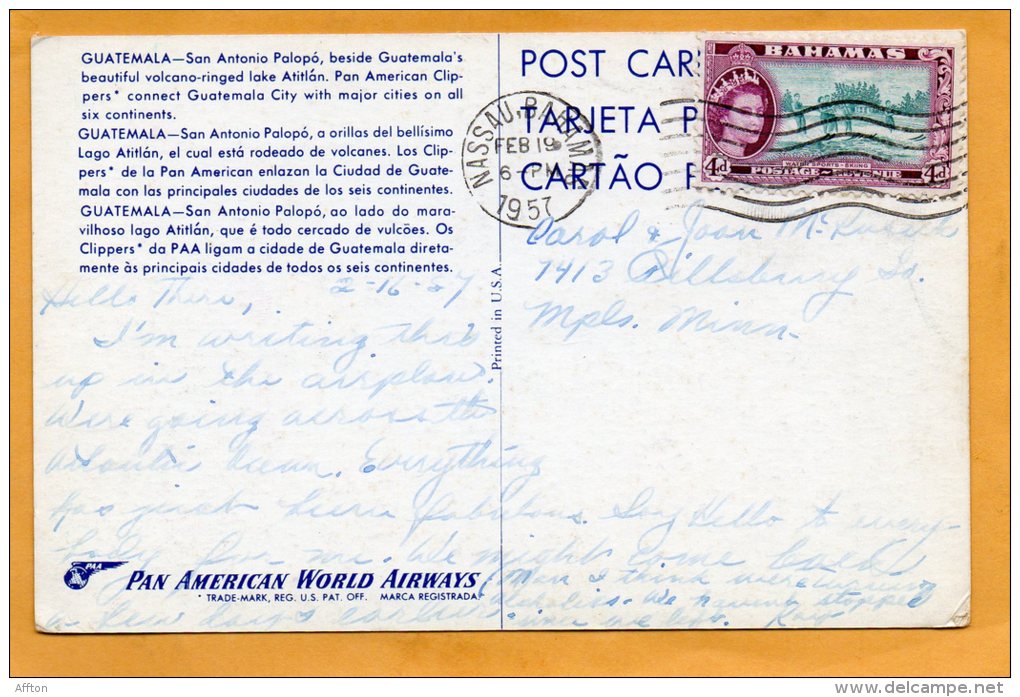 GUATEMALA—San Antonio Palopó, beside Guatemala's
beautiful volcano-ringed lake Atitlán. Pan American Clip-
pers* connect Guatemala City with major cities on all
six continents.
GUATEMALA—San Antonio Palopó, a orillas del bellísimo
Lago Atitlán, el cual está rodeado de volcanes. Los Clip-
pers* de la Pan American enlazan la Ciudad de Guate-
mala con las principales ciudades de los seis continentes.
GUATEMALA—San Antonio Palopó, ao lado do mara-
vilhoso lago Atitlán, que é todo cercado de vulcões. Os
Clippers* da PAA ligam a cidade de Guatemala direta-
mente às principais cidades de todos os seis continentes.
Hello There, 2-16-57
I'm writing this
up in the airplane.
We're going across the
Atlantic Ocean. Everything
has just been fabulous. Say Hello to every-
body for me. We might come back
a few days earlier
Mom I think
We
Kay
PAA
PAN AMERICAN WORLD AIRWAYS
*TRADE-MARK, REG. U.S. PAT. OFF. MARCA REGISTRADA
Printed in U.S.A.
POST CAR
TARJETA P
CARTÃO P
NASSAU, BAHAMAS
FEB 19
6-PM
1957
BAHAMAS
WATER SPORTS - SKIING
4d POSTAGE REVENUE 4d
Carol & Joan
7413 Pillsbury So.
Mpls. Minn.
Afton
delcampe.net